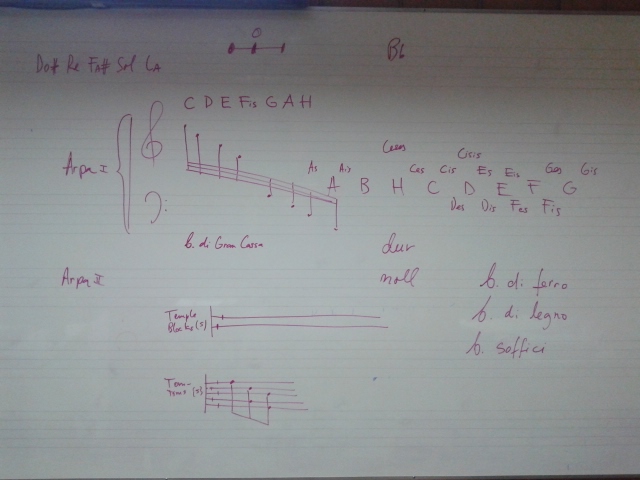 O
Bb
Do# Re Fa# Sol La
C D E Fis G A H
Arpa I
As Ais Ceses Ces Cis Cisis Es Eis Ges Gis
A B H C D E F G
Des Dis Fes Fis
b. di Gran Cassa
dur
moll
Arpa II
b. di ferro
b. di legno
b. soffici
Temple
Blocks (5)
Tom-
Toms (5)